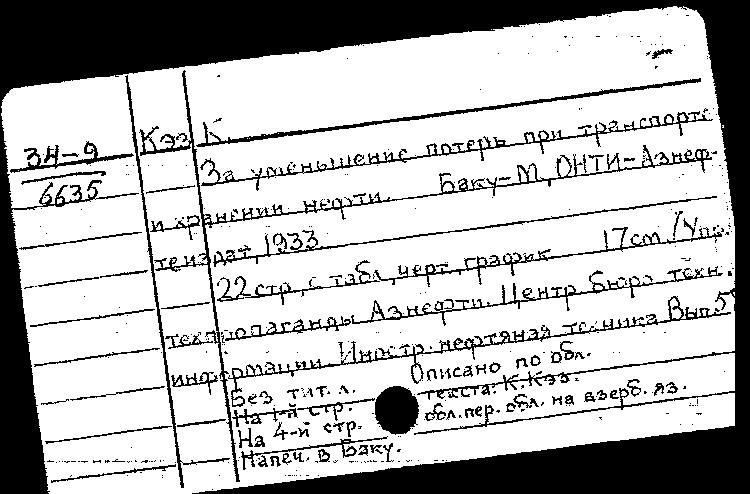 34-9
6635
Кэз К.
За уменьшение потерь при транспорте
и хранении нефти. Баку-М, ОНТИ-Азнеф-
теиздат, 1933.
22 стр., с табл, черт, график 17 см. /Упр.
техпропаганды Азнефти. Центр бюро техн.
информации. Иностр. нефтяная техника Вып.5
Без тит. л. Описано по обл.
На 1-й стр. текста: К. Кэз.
На 4-й стр. обл. пер. обл. на азерб. яз.
Напеч. в Баку.